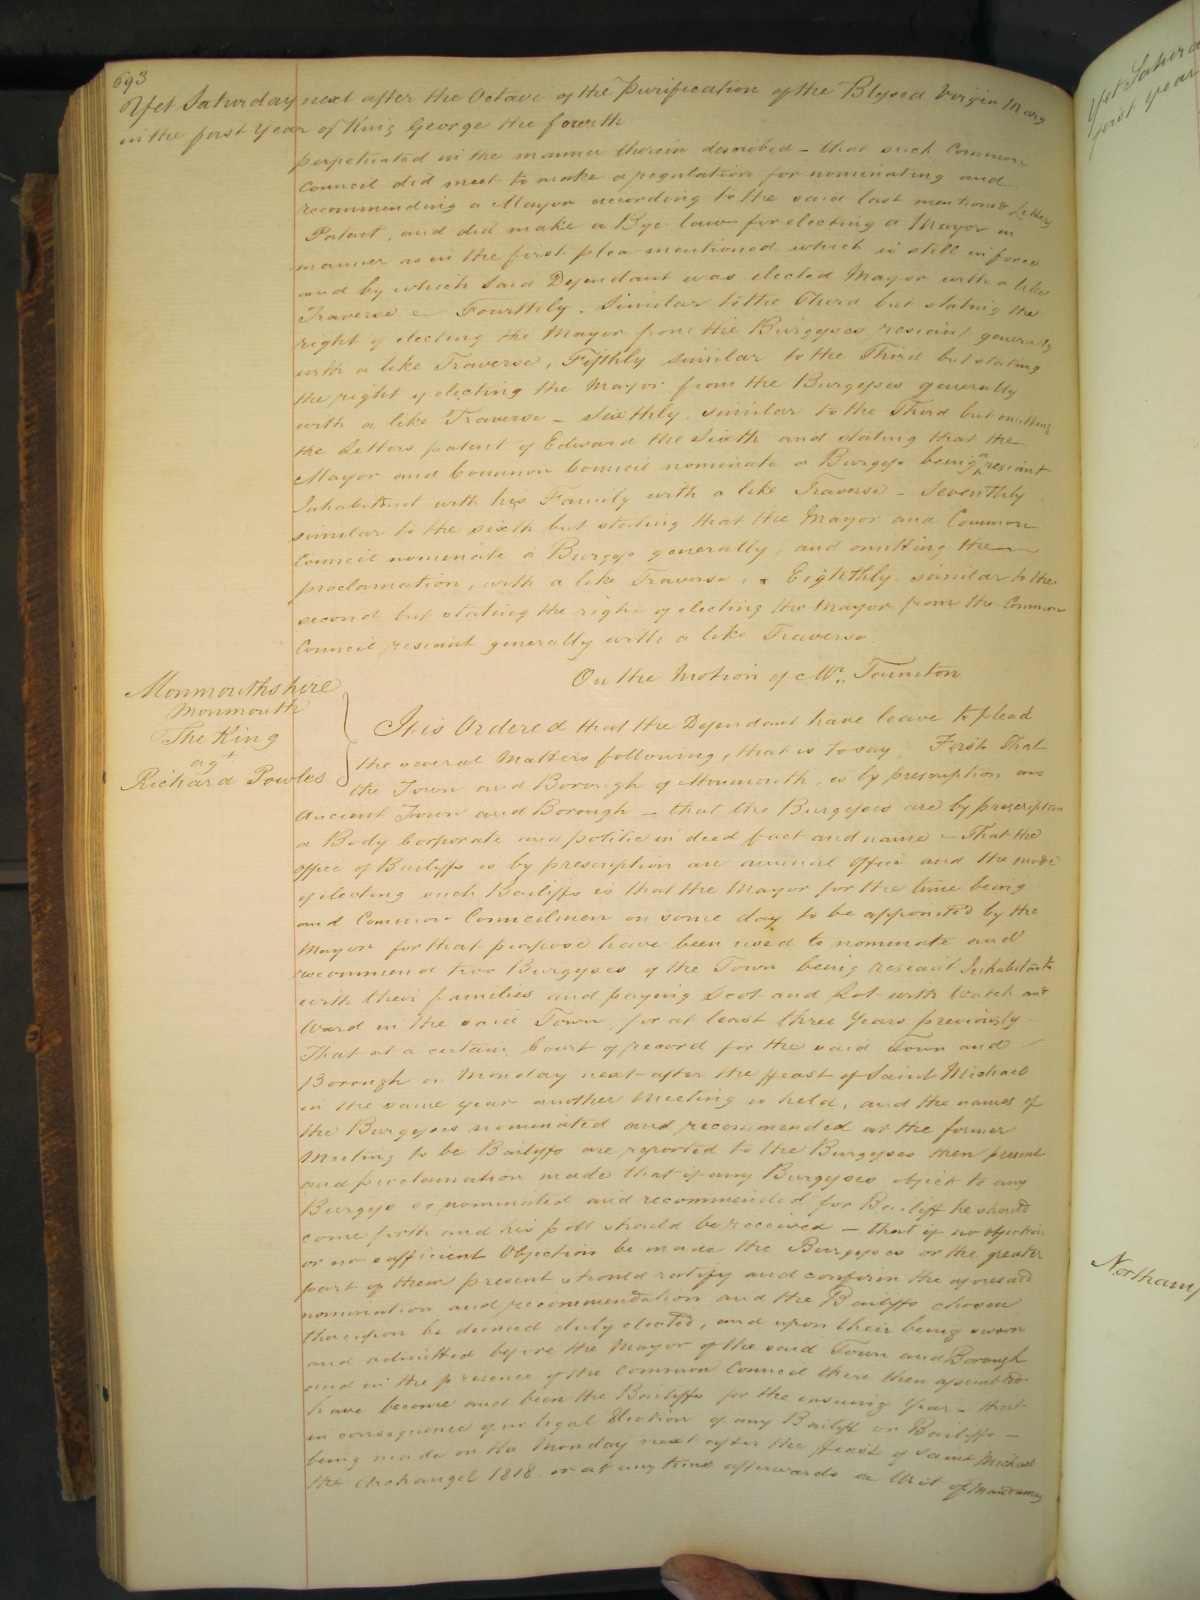 693
Yet Saturday next after the Octave of the Purification of the Blessed Virgin Mary
in the first Year of King George the fourth
perpetuated in the manner therein described - that such Common
Council did meet to make a regulation for nominating and
recommending a Mayor according to the said last mentioned Letters
Patent, and did make a Bye law for electing a Mayor in
manner as in the first plea mentioned which is still in force
and by which said Defendant was elected Mayor with a like
Traverse - Fourthly. Similar to the Third but stating the
right of electing the Mayor from the Burgesses resiant generally
with a like Traverse, Fifthly similar to the Third but stating
the right of electing the Mayor from the Burgesses generally
with a like Traverse - Sixthly. similar to the Third but omitting
the Letters patent of Edward the Sixth and stating that the
Mayor and Common Council nominate a Burgess being a resiant
Inhabitant with his Family with a like Traverse - Seventhly
similar to the sixth but stating that the Mayor and Common
Council nominate a Burgess generally, and omitting the
proclamation, with a like Traverse, & Eighthly. similar to the
second but stating the right of electing the Mayor from the Common
Council resiant generally with a like Traverse.
On the Motion of Mr. Taunton
Monmouthshire
Monmouth
The King
agt
Richard Powles
It is Ordered that the Defendant have leave to plead
the several Matters following, that is to say, First That
the Town and Borough of Monmouth, is by prescription an
Ancient Town and Borough - that the Burgesses are by prescription
a Body Corporate and politic in deed fact and name - That the
office of Bailiffs is by prescription an annual office and the mode
of electing such Bailiffs is that the Mayor for the time being
and Common Councilmen on some day to be appointed by the
Mayor for that purpose have been used to nominate and
recommend two Burgesses of the Town being resiant Inhabitants
with their families and paying Scot and Lot with Watch and
Ward in the said Town for at least three Years previously -
That at a certain Court of record for the said Town and
Borough on Monday next after the ffeast of Saint Michael
in the same year another Meeting is held, and the names of
the Burgesses nominated and recommended at the former
Meeting to be Bailiffs are reported to the Burgesses then present
and proclamation made that if any Burgesses object to any
Burgess so nominated and recommended for Bailiff he should
come forth and his poll should be received - that if no objection
or no sufficient Objection be made the Burgesses or the greater
part of them present should ratify and confirm the aforesaid
nomination and recommendation and the Bailiffs chosen
thereupon be deemed duly elected, and upon their being sworn
and admitted before the Mayor of the said Town and Borough
and in the presence of the Common Council there then assembled
have become and been the Bailiffs for the ensuing Year - that
in consequence of no legal Election of any Bailiff or Bailiffs -
being made on the Monday next after the ffeast of Saint Michael
the Archangel 1818 or at any time afterwards a Writ of Mandamus
Yet Saturd
first Year
Northamp